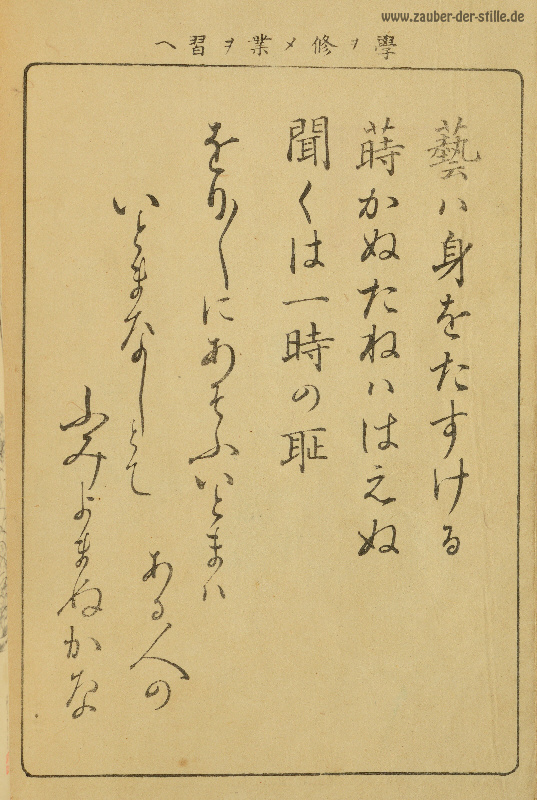 www.zauber-der-stille.de
學ヲ修メ業ヲ習ヘ
藝ハ身をたすける
蒔かぬたねハはえぬ
聞くは一時の耻
をり〳〵にあそふいとまハ
ある人の
いとまなしとて
ふみよまぬかな